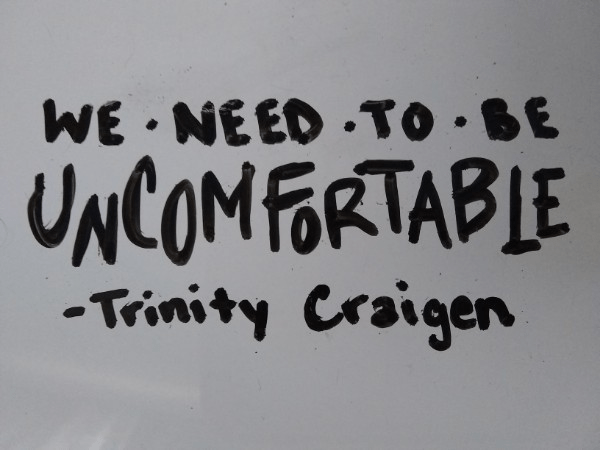 WE · NEED · TO · BE
UNCOMFORTABLE
-Trinity Craigen